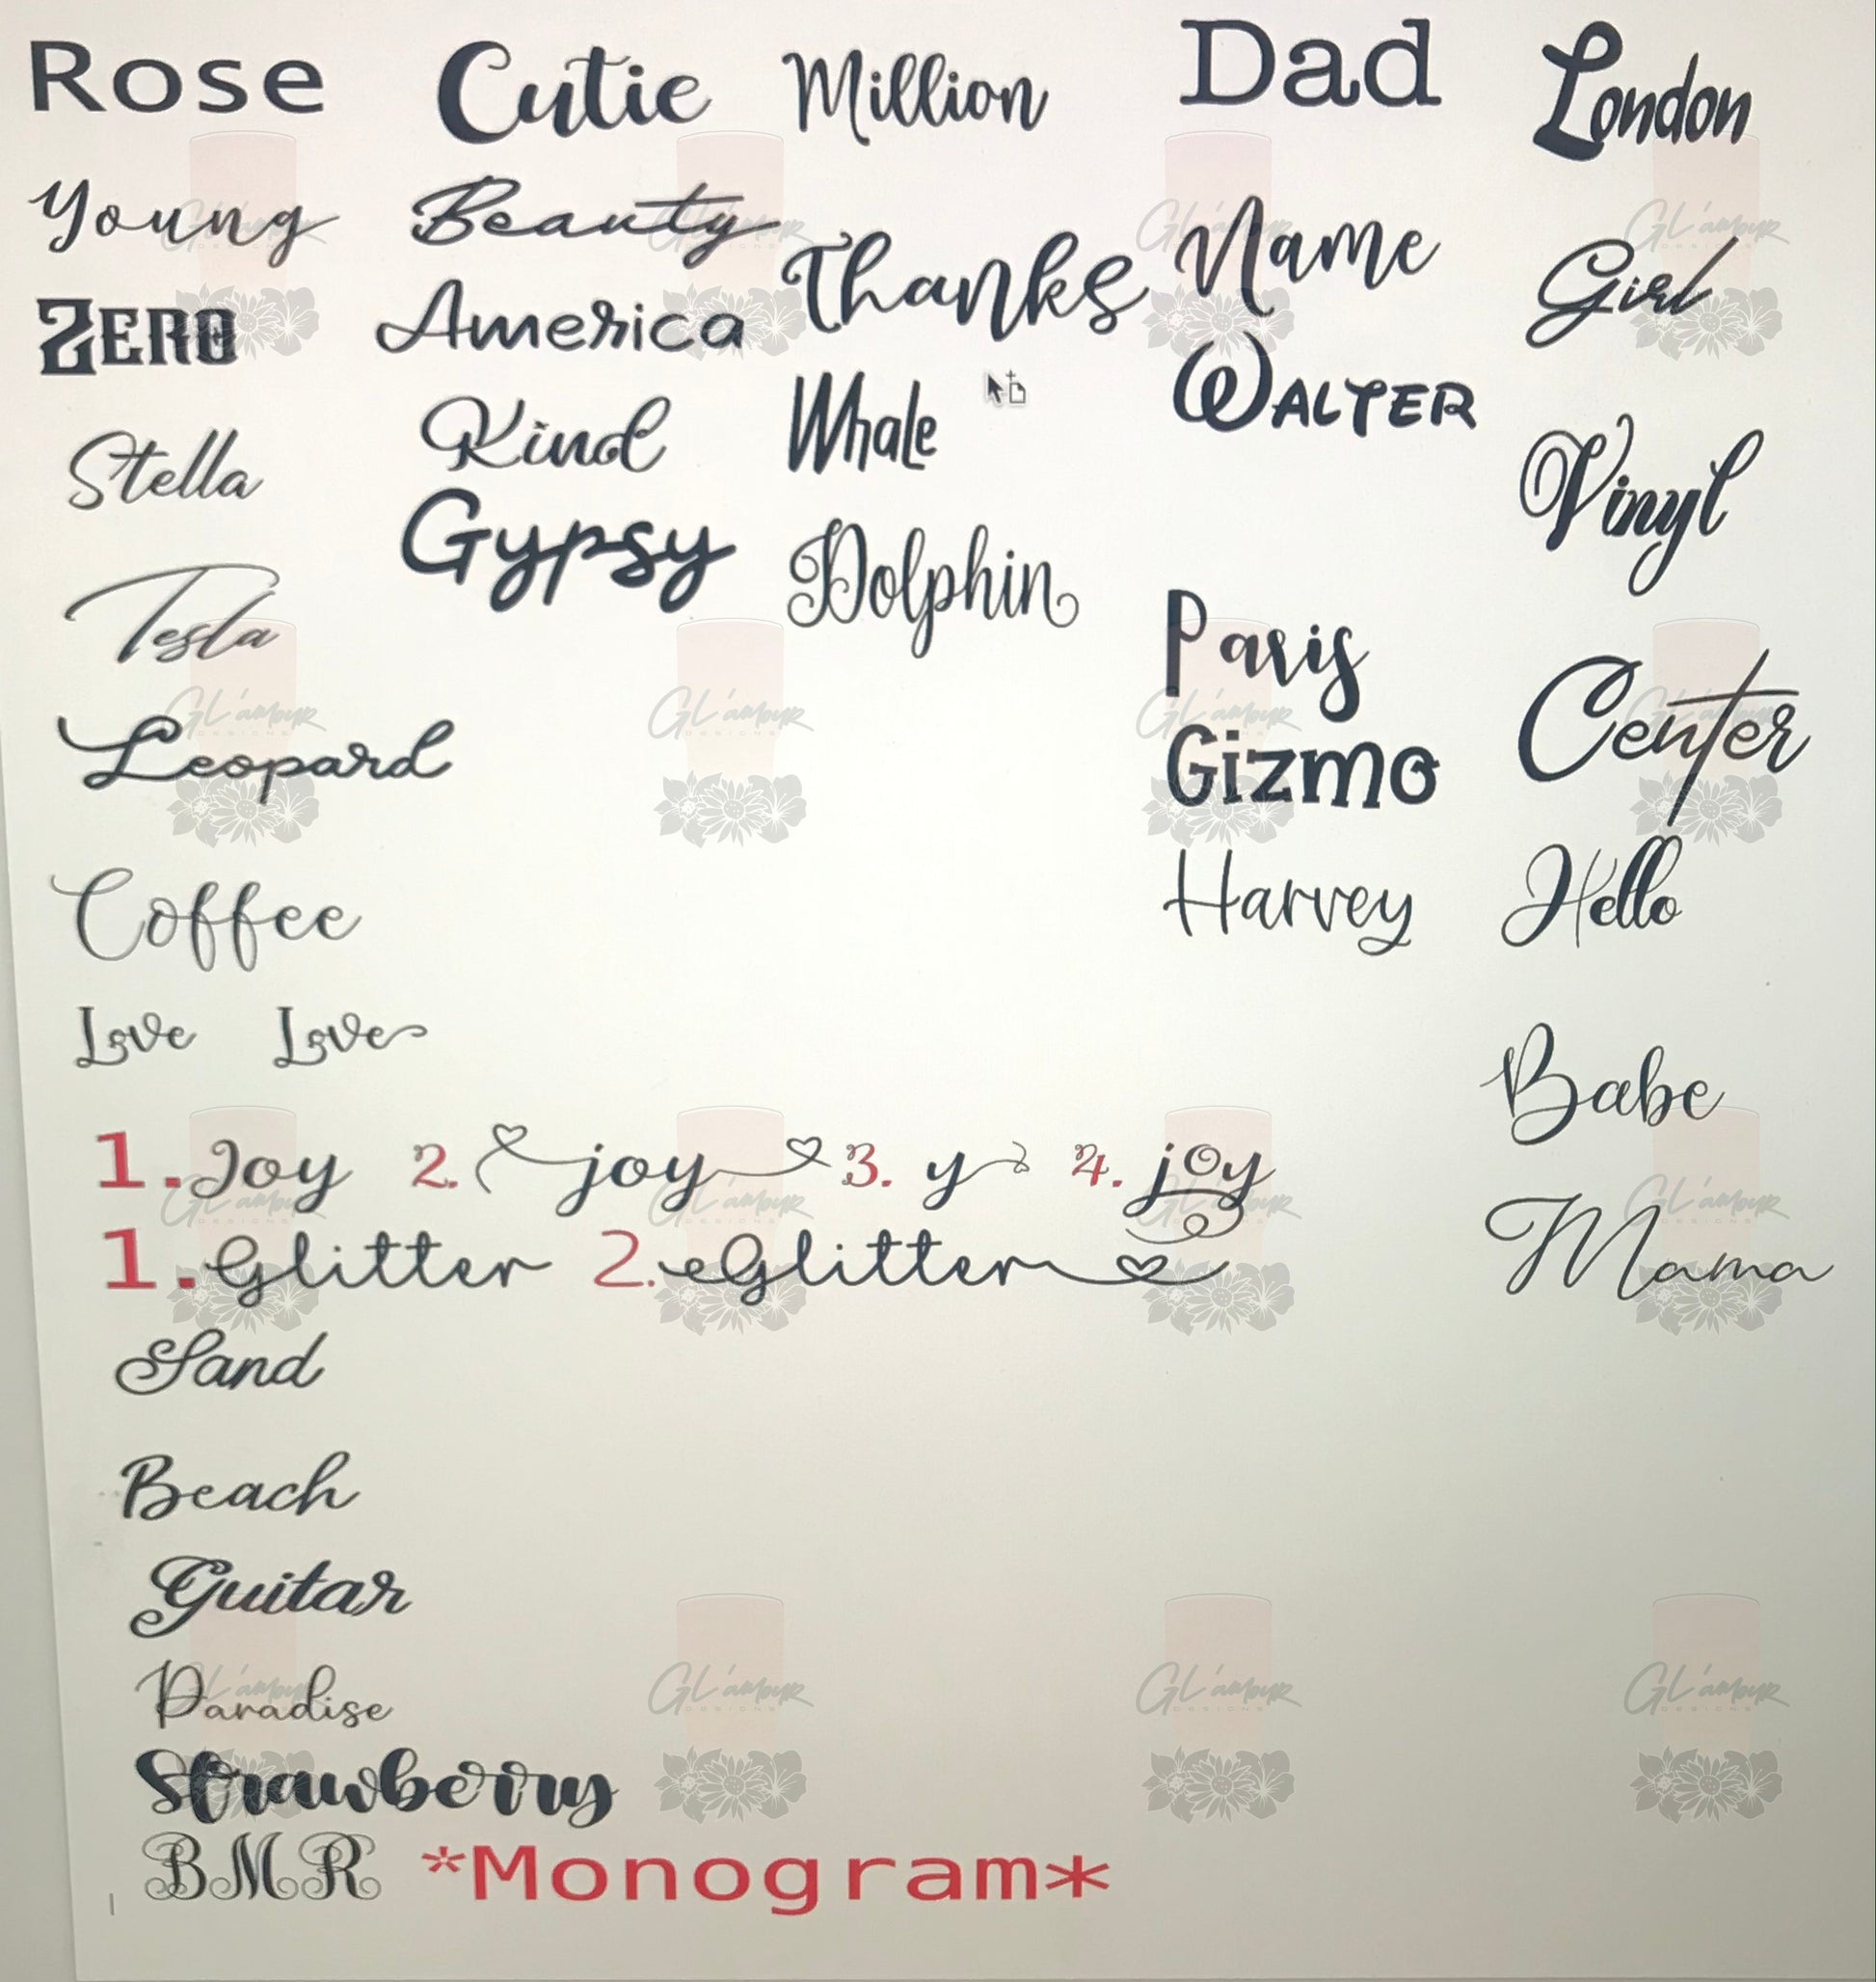 Rose Cutie Million Dad London
Young Beauty Thanks Name Girl
ZERO America Whale WALTER
Stella Kind Vinyl
Gypsy Dolphin
Tesla Paris
Leopard Gizmo Center
Coffee Harvey Hello
Love Love Babe
1. Joy 2. joy 3. y 4. joy
1. Glitter 2. Glitter Mama
Sand
Beach
Guitar
Paradise
Strawberry
BMR *Monogram*
GL'amour
DESIGNS